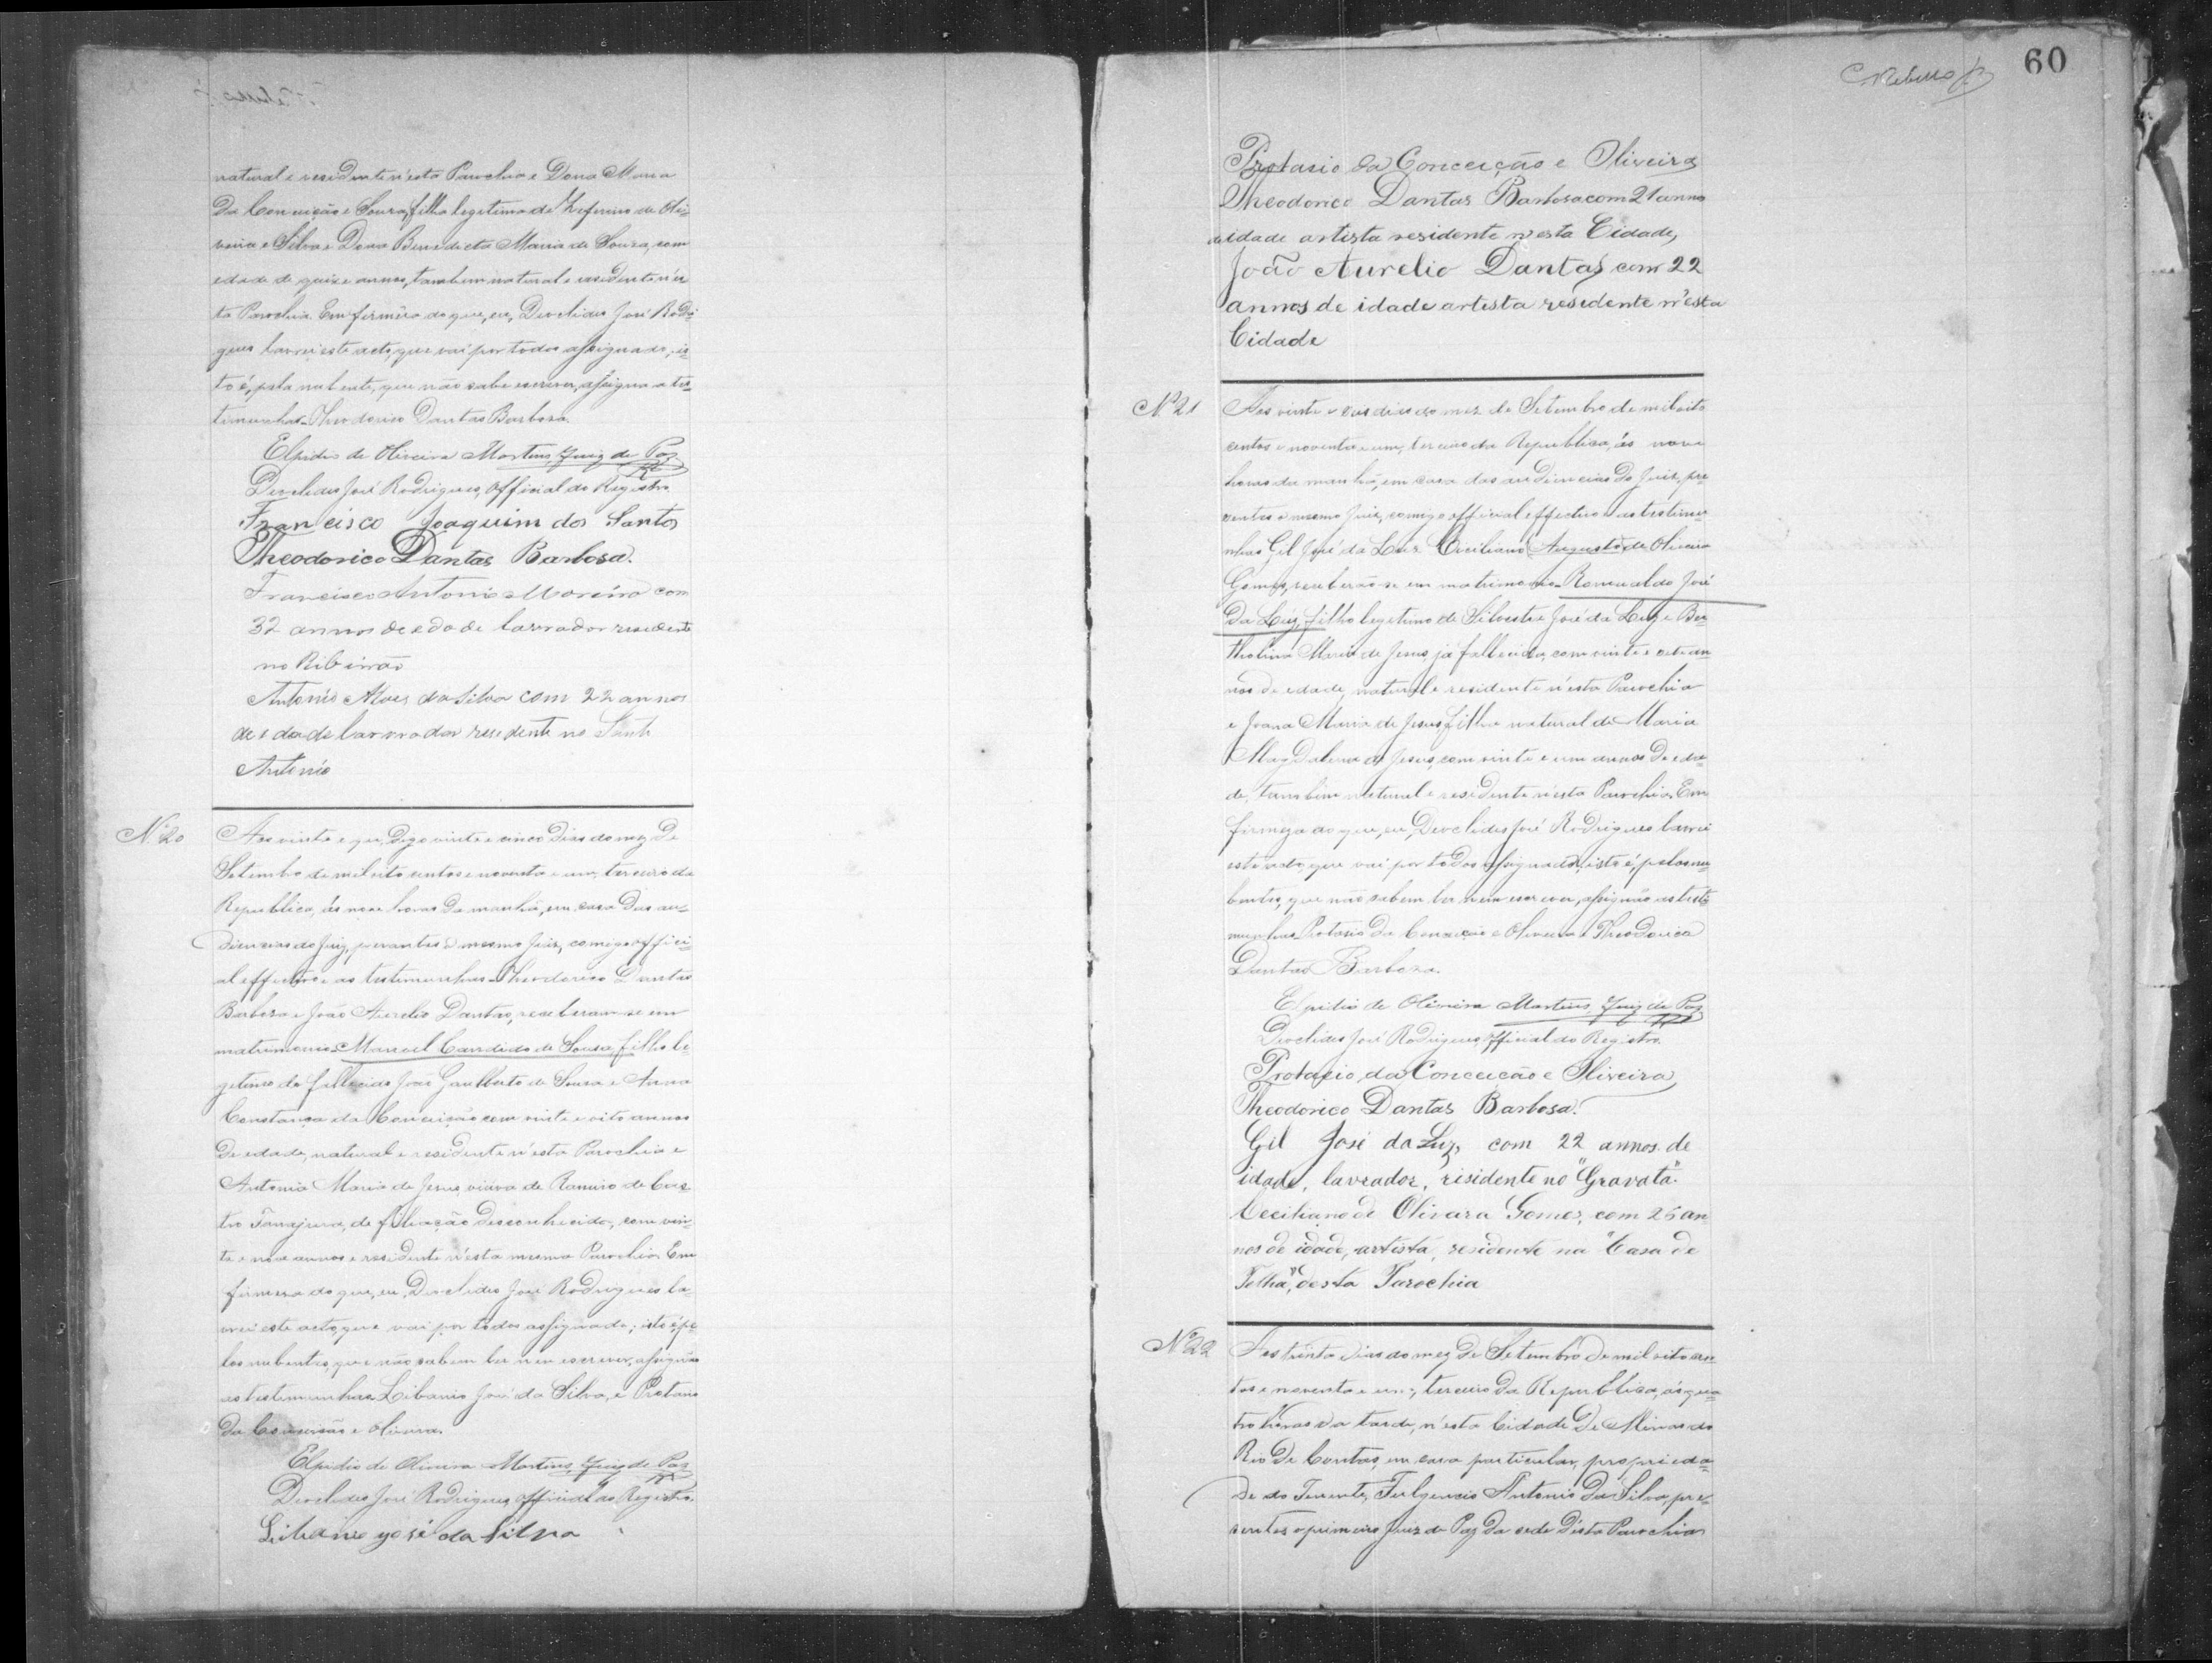 natural e residente n'esta Parochia e Dona Maria
da Conceição e Souza, filha legitima de Zeferino de Oli-
veira e Silva e Dona Benedicta Maria de Souza, com
edade de quize annos, tambem natural e residente n'es
ta Parochia. Em firmêza do que, eu, Deoclides José Rodri-
gues lavrei este acto, que vai por todos assignado, is-
to é, pela nubente, que não sabe escrever, assigna a tes-
timunha - Theodorico Dantas Barbosa.
Elpidio de Oliveira Martins, Juiz de Paz
Deoclides José Rodrigues, Official do Registro
Francisco Joaquim dos Santos
Theodorico Dantas Barbosa.
Francisco Antonio Moreira com
32 annos de edade lavrador residente
no Ribeirão
Antonio Alves da Silva com 22 annos
de edade lavrador residente no Santo
Antonio
Nº 20
Aos vinte e qu, digo vinte e cinco dias do mez de
Setembro de mil oito centos e noventa e um, terceiro da
Republica, ás nove horas da manhã, em casa das au-
diencias do Juiz, perantes o mesmo Juiz, comigo offici-
al effectivo e as testimunhas - Theodorico Dantas
Barbosa e João Aurelio Dantas, receberam-se em
matrimonio - Manoel Candido de Sousa, filho le-
getimo do fallecido João Gualberto de Sousa e Anna
Constança da Conceição com vinte e oito annos
de edade, natural e residente n'esta Parochia e
Antonia Maria de Jesus, viúva de Ramiro de Cas
tro Tanajura, de filiação desconhecida, com vin-
te e nove annos e residente n'esta mesma Parochia. Em
firmesa do que, eu, Deoclides José Rodrigues la-
vrei este acto, que vai por todos assignado; isto é, pe-
los nubentes, que não sabem ler nem escrever, assignão
as testimunhas Libanio José da Silva, e Protasio
da Conceição e Oliveira.
Elpidio de Oliveira Martins, Juiz de Paz
Deoclides José Rodrigues, official do Registro.
Libanio José da Silva
60
Protasio da Conceição e Oliveira
Theodorico Dantas Barbosa com 21 annos
de idade artista residente n'esta Cidade,
João Aurelio Dantas com 22
annos de idade artista residente n'esta
Cidade
Nº 21
Aos vinte e seis dias do mez de Setembro de mil oito
centos e noventa e um, terceiro da Republica, ás nove
horas da manhã, em casa das audiencias do Juiz, pre
sentes o mesmo Juiz, comigo official effectivo e as testimu-
nhas Gil José da Luz e Ceciliano Augusto de Oliveira
Gomes, receberão-se em matrimonio - Romualdo José
da Luz, filho legitimo de Silvestre José da Luz e Ber-
tholina Maria de Jesus, já fallecida, com vinte e sete an-
nos de edade, natural e residente n'esta Parochia
e Joana Maria de Jesus, filha natural de Maria
Magdalena de Jesus, com vinte e um annos de eda-
de, tambem natural e residente n'esta Parochia. Em
firmeza do que, eu, Deoclides José Rodrigues lavrei
este acto, que vai por todos assignado, isto é, pelos nu-
bentes, que não sabem ler nem escrever, assignão as testi-
munhas Protasio da Conceição e Oliveira e Theodorico
Dantas Barbosa.
Elpidio de Oliveira Martins, Juiz de Paz
Deoclides José Rodrigues, official do Registro.
Protasio da Conceição e Oliveira
Theodorico Dantas Barbosa.
Gil José da Luz, com 22 annos de
idade, lavrador, risidente no "Gravatá".
Ceciliano de Olivara Gomes, com 25 an
nos de idade, artista, residente na "Casa de
Telha", desta Parochia
Nº 22
Aos trinta dias do mez de Setembro de mil oito cen-
tos e noventa e um, terceiro da Republica, ás qua-
tro horas da tarde, n'esta Cidade de Minas do
Rio de Contas, em casa particular, proprieda-
de do Tenente, Fulgencio Antonio da Silva, pre-
sentes o primeiro Juiz de Paz da sede d'esta Parochia